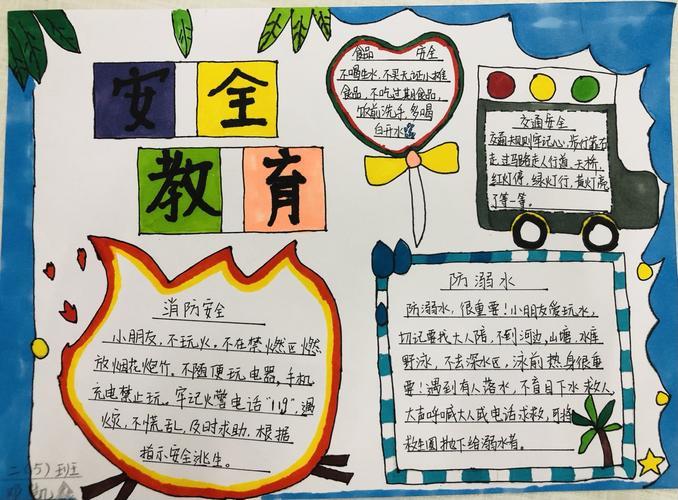 安全
教育
食品 安全
不喝生水,不买无证小摊
食品,不吃过期食品,
饭前洗手,多喝
白开水
交通安全
交通规则牢记心,步行靠右
走,过马路走人行道、天桥,
红灯停,绿灯行,黄灯亮
了等一等。
消防安全
小朋友,不玩火。不在禁燃区燃
放烟花炮竹。不随便玩电器,手机
充电禁止玩。牢记火警电话“119”,遇
火灾,不慌乱,及时求助,根据
指示安全逃生。
防溺水
防溺水,很重要!小朋友爱玩水,
切记要找大人陪,不到河边,山塘,水库
野泳,不去深水区;泳前热身很重
要!遇到有人落水,不盲目下水救人,
大声呼喊大人或电话求救,可将
救生圈抛下给溺水者。
二(5)班